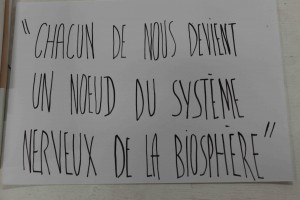 "CHACUN DE NOUS DEVIENT
UN NOEUD DU SYSTÈME
NERVEUX DE LA BIOSPHÈRE"